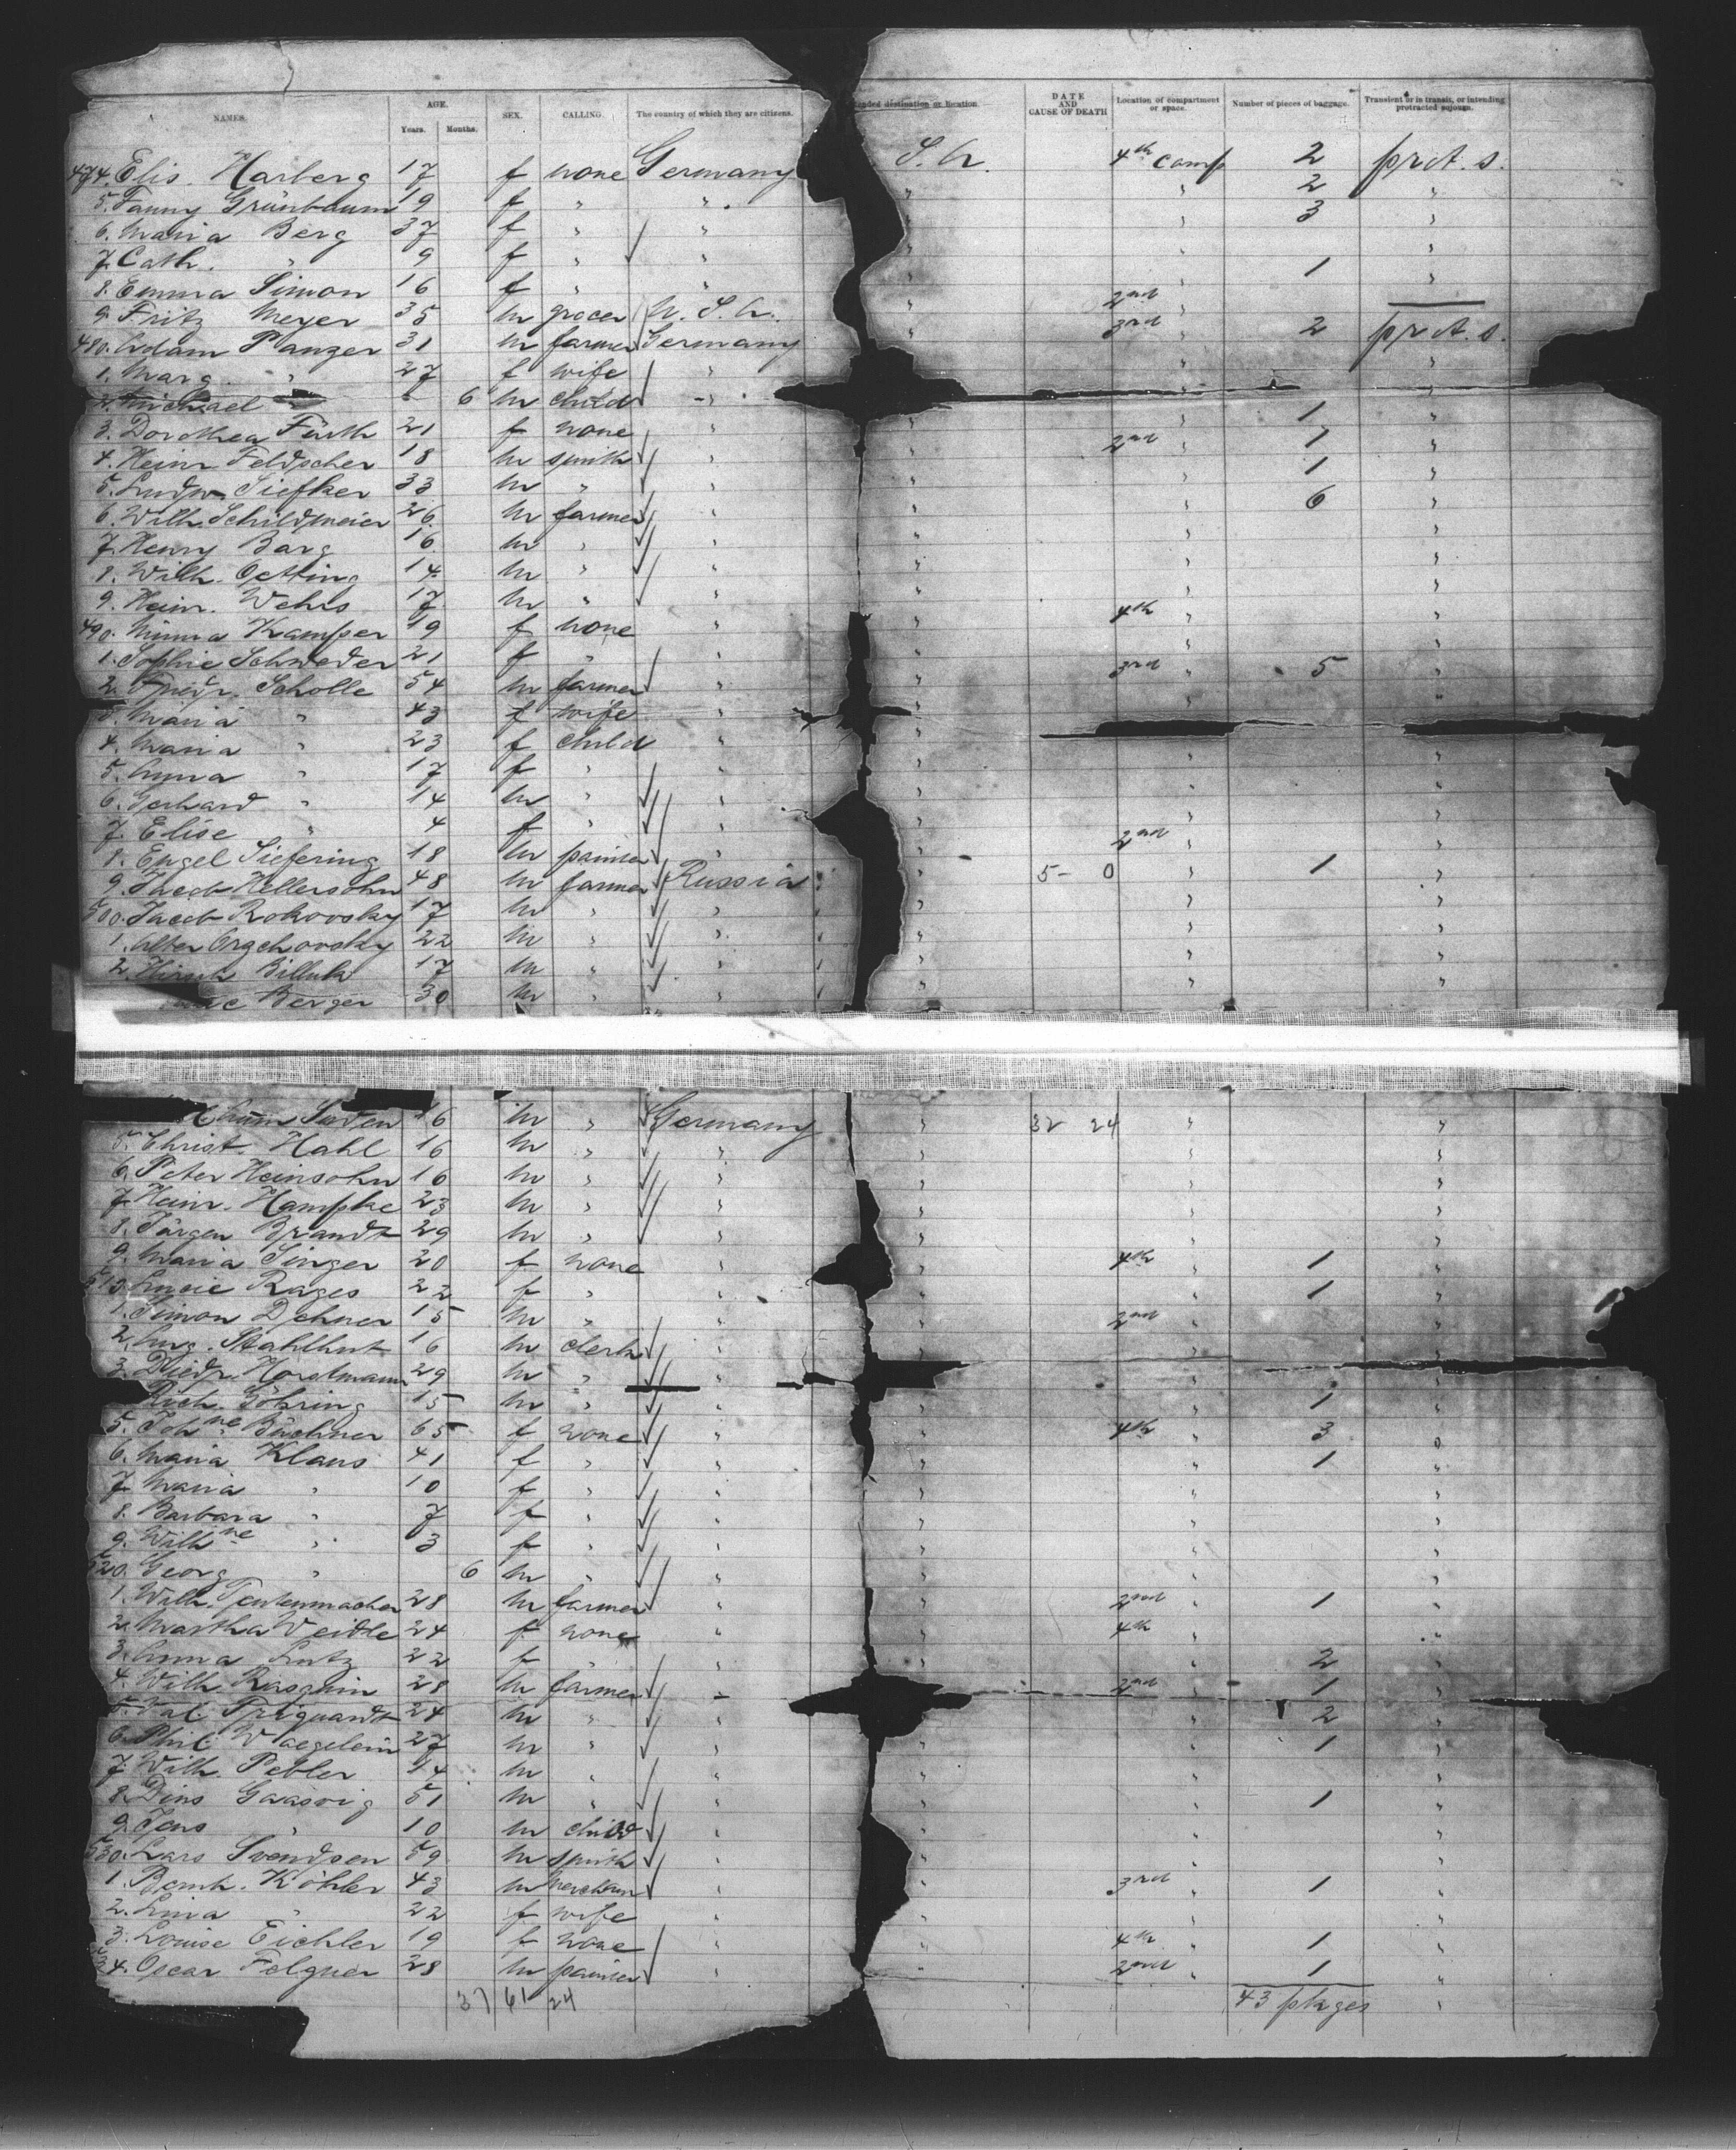 NAMES. AGE. Years. Months. SEX. CALLING. The country of which they are citizens. ended destination or location. DATE AND CAUSE OF DEATH Location of compartment or space. Number of pieces of baggage. Transient or in transit, or intending protracted sojourn.
474. Elis. Harberg 17 f none Germany S. A. 4th comp 2 prot. s.
5. Fanny Grünbaum 19 f " " " " 2 "
6. Maria Berg 37 f " " " " 3 "
7. Cath. " 9 f " " " " "
8. Emma Simon 16 f " " " " 1 "
9. Fritz Meyer 35 m grocer U. S. A. " 2nd "
480. Adam Panzer 31 m farmer Germany " 3rd " 2 prot. s.
1. Marg. " 27 f wife " " "
2. Michael " 6 m child "
3. Dorothea Fürth 21 f none " " " 1 "
4. Heinr. Feldscher 18 m smith " " 2nd " 1 "
5. Ludw. Siefker 33 m " " " " 1 "
6. Wilh. Schildmeier 26 m farmer " " " 6 "
7. Henry Barg 16 m " " " " "
8. Wilh. Oetting 14 m " " " " "
9. Heinr. Wehrs 17 m " " " " "
490. Minna Kamper 19 f none " " 4th " "
1. Sophie Schweder 21 f " " " " "
2. Friedr. Scholle 54 m farmer " " 3rd " 5 "
3. Maria " 43 f wife " " " "
4. Maria " 23 f child " "
5. Anna " 17 f " " " " "
6. Gerhard " 14 m " " " " "
7. Elise " 4 f " " " " "
8. Engel Siefering 18 m painter " " 2nd " "
9. Jacob Hellersohn 48 m farmer Russia " 5- 0 " 1 "
500. Jacob Rokovsky 17 m " " " " "
1. Alter Orzchovsky 22 m " " " " "
2. 17 m " " " " "
Berger 30 m " " " "
16 m " Germany " 32 24 " "
5. Christ. Hahl 16 m " " " "
6. Peter Heinsohn 16 m " " " "
7. Heinr. Hampke 23 m " " " "
8. Jürgen Brandt 29 m " " " "
9. Maria Singer 20 f none " " 4th " 1 "
510. Lucie Rages 22 f " " " " 1 "
1. Simon Dehner 15 m " " " 2nd " "
2. Aug. Stahlhut 16 m clerk " " " "
3. Diedr. Horstmann 29 m " " "
Rich. Göhring 15 m " " " " 1 "
5. Johne Büchner 65 f none " " 4th " 3 "
6. Maria Klaus 41 f " " " " 1 "
7. Maria " 10 f " " " " "
8. Barbara " 7 f " " " " "
9. Wilhne " 3 f " " " " "
520. Georg " 6 m " " " " "
1. Wilh. 28 m farmer " " 2nd " 1 "
2. Martha Weidle 24 f none " " 4th " "
3. Anna Lutz 22 f " " " " 2 "
4. Wilh. Rasquin 28 m farmer " " 2nd " 1 "
5. Val. 24 m " " " 2 "
6. Phil. Waegelein 27 m " " " " 1 "
7. Wilh. Pebler 14 m " " " " "
8. Dins Gaasvig 51 m " " " " 1 "
9. Jens " 10 m child " " " "
530. Lars Svendsen 59 m smith " " " "
1. Bernh. Köhler 43 m merchant " " 3rd " 1 "
2. Lina " 22 f wife " " " "
3. Louise Eichler 19 f none " " 4th " 1 "
4. Oscar Felgner 28 m painter " " 2nd " 1 "
37 61 24 43 pkges "